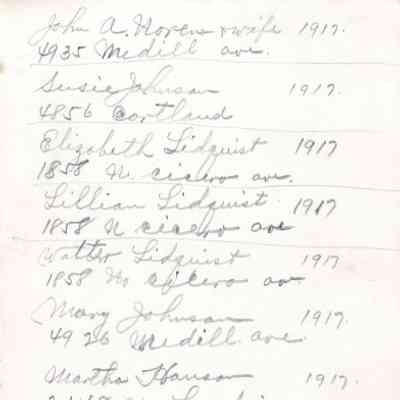 John A. Noren & wife 1917.
4935 Medill ave.
Susie Johnson 1917.
4856 Cortland
Elizabeth Lidquist 1917
1858 N. Cicero ave.
Lillian Lidquist 1917
1858 N Cicero ave
Walter Lidquist 1917
1858 No Cicero av
Mary Johnson 1917.
4926 Medill ave.
Martha Hanson 1917.